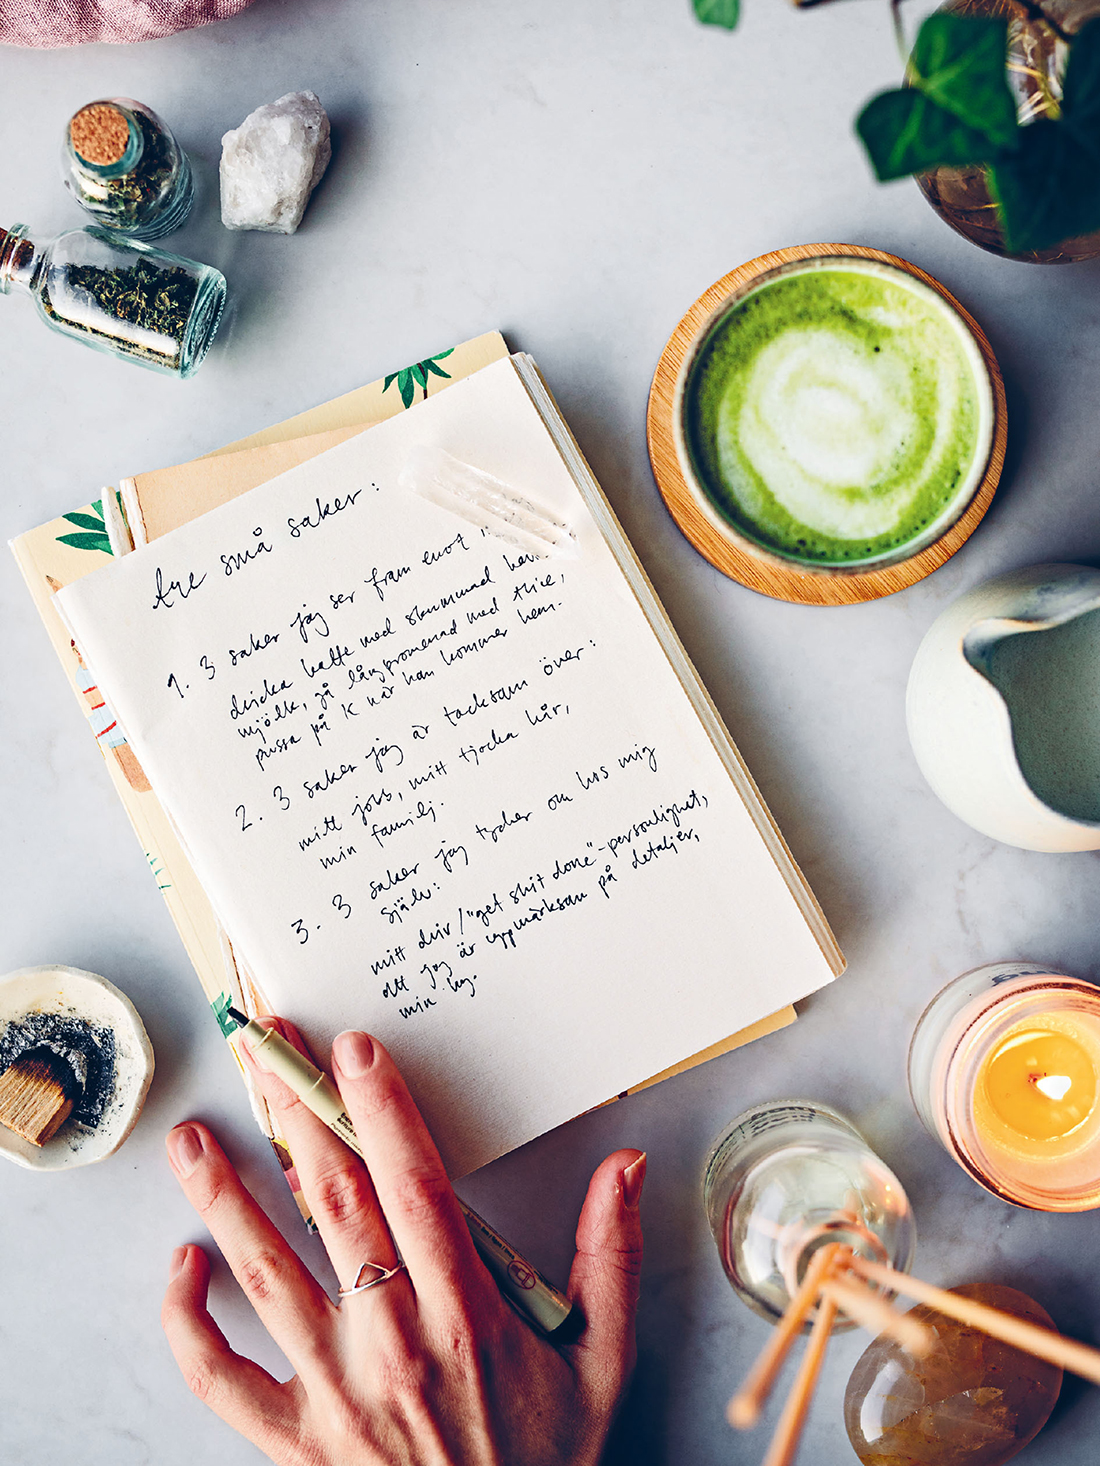 tre små saker:
1. 3 saker jag ser fram emot
dricka kaffe med skummad
mjölk, gå långpromenad med Alice,
pussa på K när han kommer hem.
2. 3 saker jag är tacksam över:
mitt jobb, mitt tjocka hår,
min familj.
3. 3 saker jag tycker om hos mig
själv:
mitt driv/"get shit done"-personlighet,
att jag är uppmärksam på detaljer,
min hy.